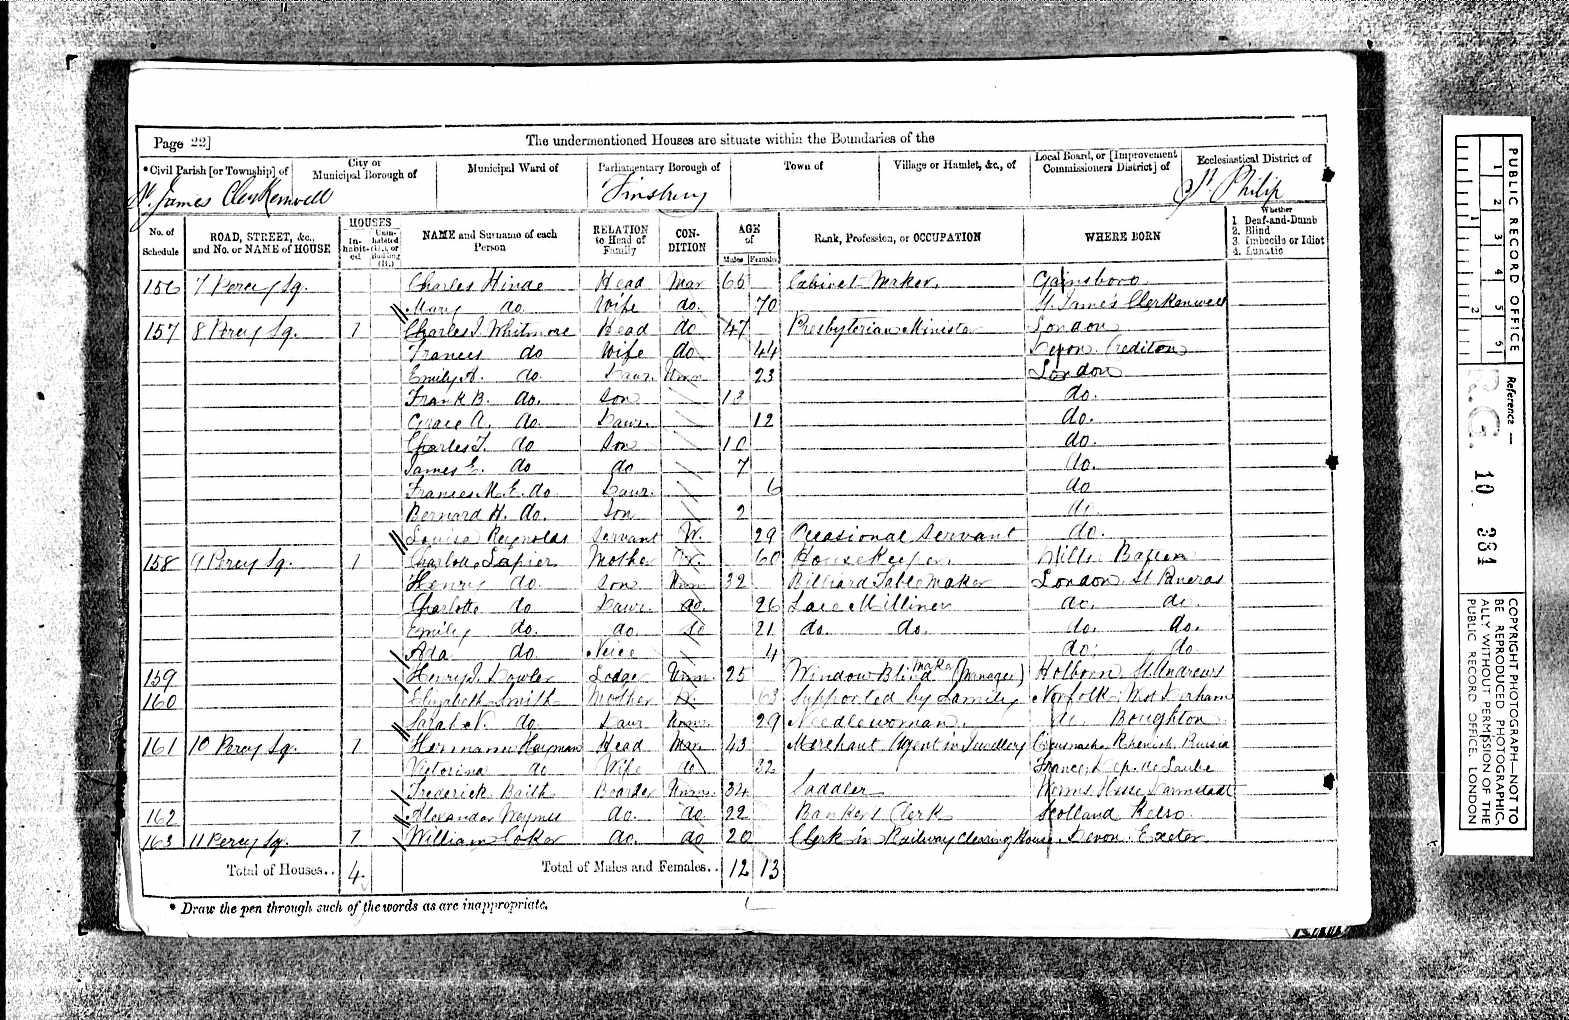 Page 22]
The undermentioned Houses are situate within the Boundaries of the
*Civil Parish [or Township] of
City or Municipal Borough of
Municipal Ward of
Parliamentary Borough of
Town of
Village or Hamlet, &c., of
Local Board, or [Improvement Commissioners District] of
Ecclesiastical District of
St. James Clerkenwell
Finsbury
St Philip
No. of Schedule
ROAD, STREET, &c., and No. or NAME of HOUSE
HOUSES
Inhabited
Uninhabited (U.), or Building (B.)
NAME and Surname of each Person
RELATION to Head of Family
CONDITION
AGE of
Males
Females
Rank, Profession, or OCCUPATION
WHERE BORN
Whether
1 Deaf-and-Dumb
2. Blind
3. Imbecile or Idiot
4. Lunatic
156 7 Percy Sq. Charles Hinde Head Mar 65 Cabinet Maker. Gainsboro
Mary do. Wife do. 70 St. James Clerkenwell
157 8 Percy Sq. 1 Charles J. Whitmore Head do 47 Presbyterian Minister London
Frances do Wife do 44 Devon Crediton
Emily A. do. Daur. Unm 23 London
Frank B. do. Son 13 do.
Grace A. do. Daur. 12 do.
Charles F. do Son 10 do.
James E. do do 7 do.
Frances M. E. do Daur. 6 do
Bernard H. do. Son 2 do
Louisa Reynolds Servant W. 29 Occasional Servant do.
158 9 Percy Sq. 1 Charlotte Mother W. 60 Housekeeper. Wilts
Henry do. Son Unm 32 Billiard Table Maker London St Pancras
Charlotte do Daur. do. 26 Lace Milliner do. do.
Emily do. do. do 21 do. do. do. do.
Ada do. Neice 4 do. do
159 Henry J. Lodger Unm 25 Window Blind Maker (Manager) Holborn St Andrews
160 Elizabeth Smith Mother W. 63 Supported by Family Norfolk
Sarah N. do. Daur Unm. 29 Needlewoman. do. Boughton
161 10 Percy Sq. 1 Hermann Heyman Head Mar 43 Merchant Agent in Jewellery Rhenish Prussia
Victorina do Wife do 32 France Dep. de
Frederick Boarder Unm. 34 Saddler Worms Hesse Darmstadt
162 Alexander do. do 22 Bankers Clerk Scotland Kelso
163 11 Percy Sq. 1 William Coker do. do 20 Clerk in Railway Clearing House Devon. Exeter
Total of Houses.. 4
Total of Males and Females.. 12 13
* Draw the pen through such of the words as are inappropriate.
PUBLIC RECORD OFFICE
1 2 3 4 5 6
1 2
Reference :-
R.G. 10 384
COPYRIGHT PHOTOGRAPH—NOT TO
BE REPRODUCED PHOTOGRAPHIC-
ALLY WITHOUT PERMISSION OF THE
PUBLIC RECORD OFFICE, LONDON